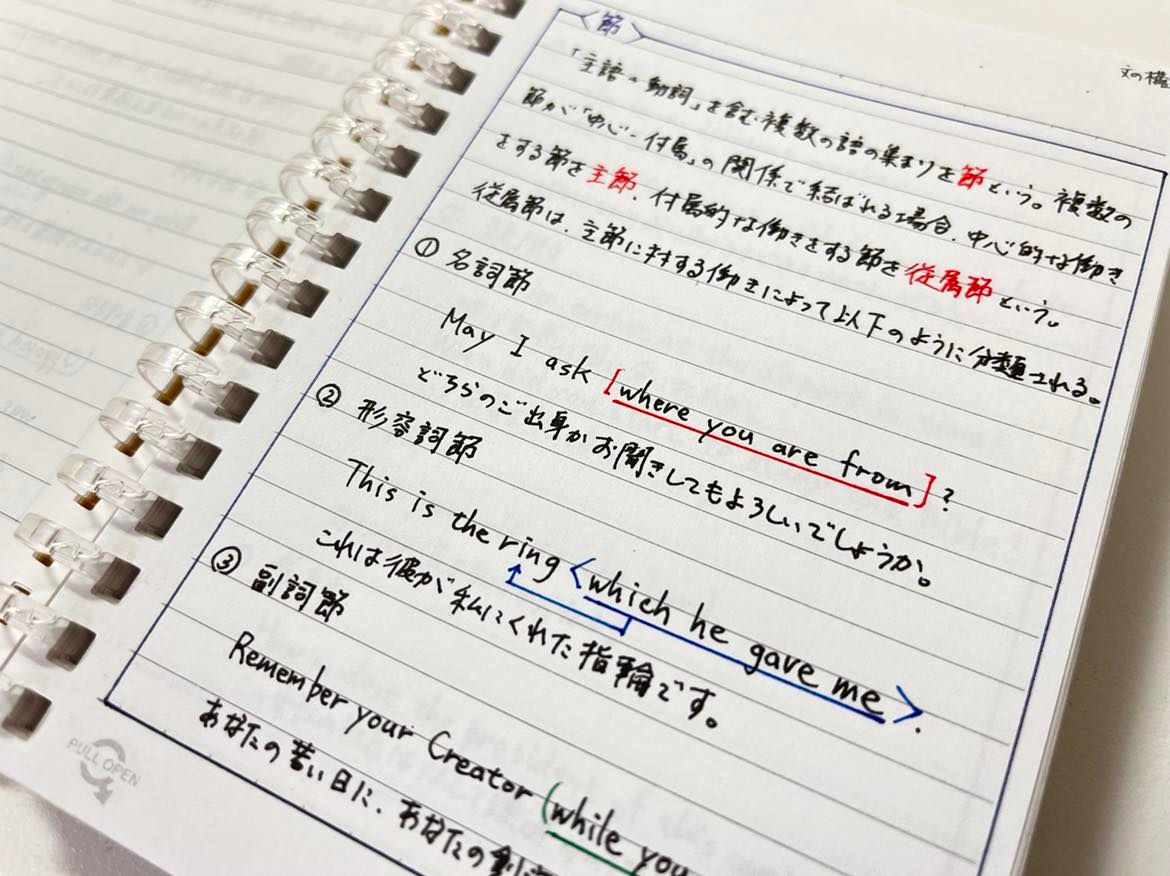 文の構
〈節〉
「主語+動詞」を含む複数の語の集まりを節という。複数の
節が「中心-付属」の関係で結ばれる場合、中心的な働き
をする節を主節、付属的な働きをする節を従属節という。
従属節は、主節に対する働きによって以下のように分類される。
① 名詞節
May I ask [where you are from]?
どちらのご出身かお聞きしてもよろしいでしょうか。
② 形容詞節
This is the ring <which he gave me>.
これは彼が私にくれた指輪です。
③ 副詞節
Remember your Creator (while you
あなたの若い日に、あなたの創造
PULL OPEN